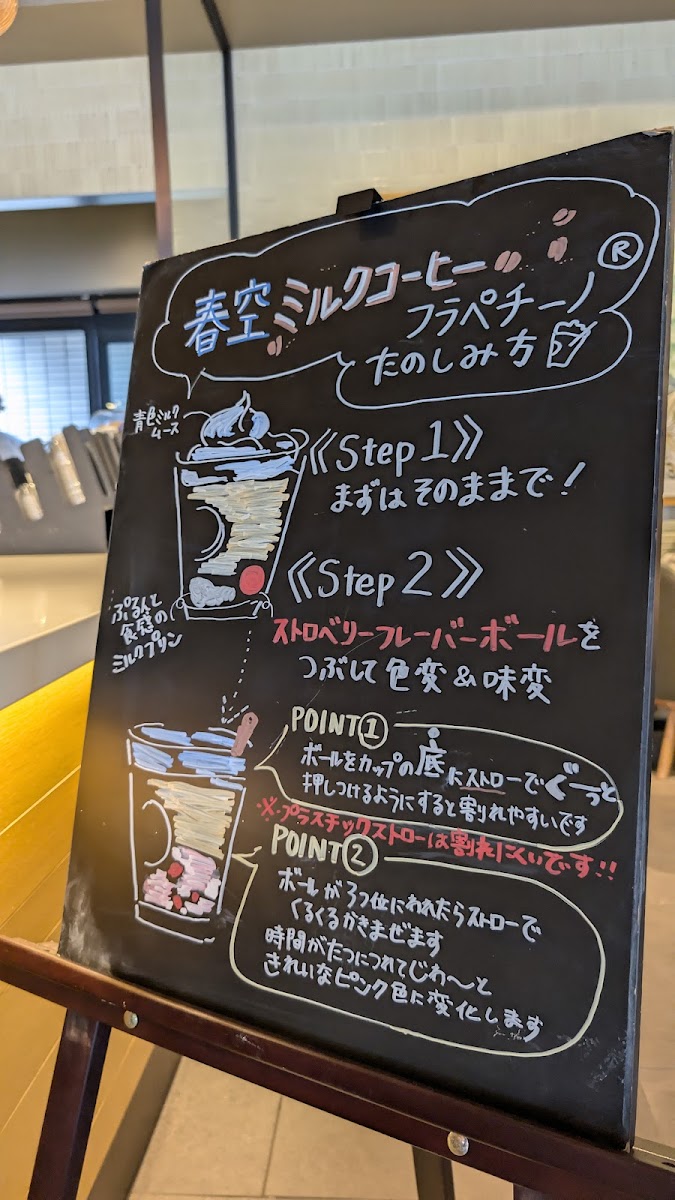 春空ミルクコーヒー
フラペチーノ®
たのしみ方
青色ミルク
ムース
《Step1》
まずはそのままで！
《Step2》
ぷるんと
食感の
ミルクプリン
ストロベリーフレーバーボールを
つぶして色変&味変
POINT①
ボールをカップの底にストローでぐーっと
押しつけるようにすると割れやすいです
※プラスチックストローは割れにくいです!!
POINT②
ボールが3つ位にわれたらストローで
くるくるかきまぜます
時間がたつにつれてじわ〜と
きれいなピンク色に変化します